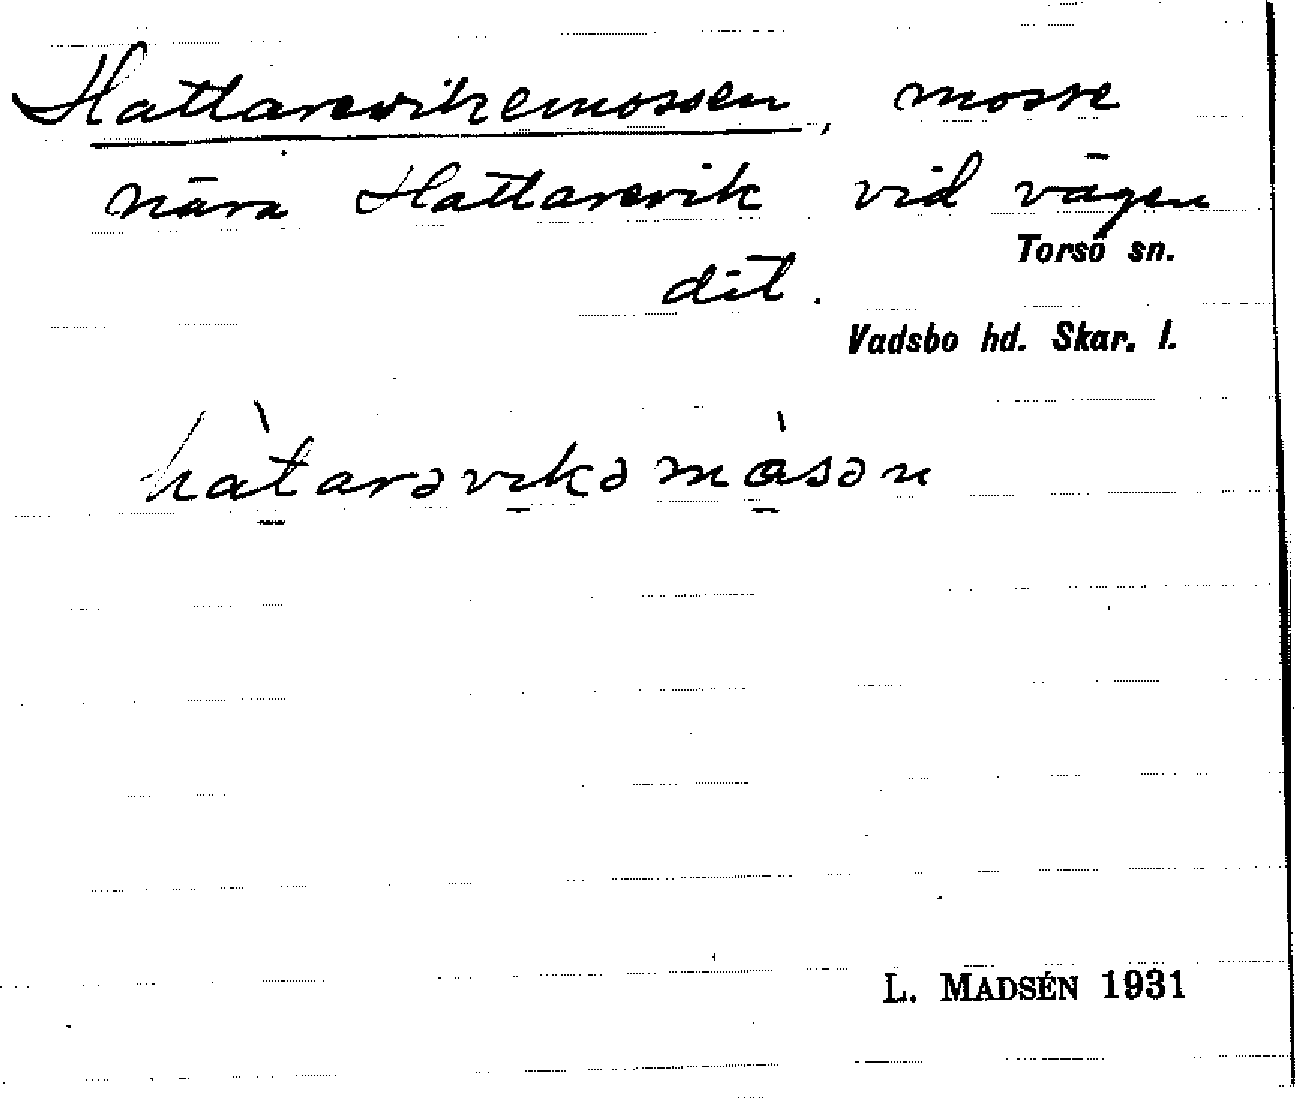 Hattarevikemossen, mosse
nära Hattarevik vid vägen
Torsö sn.
dit.
Vadsbo hd. Skar. l.
hàtarəvikəmåsən
L. MADSÉN 1931